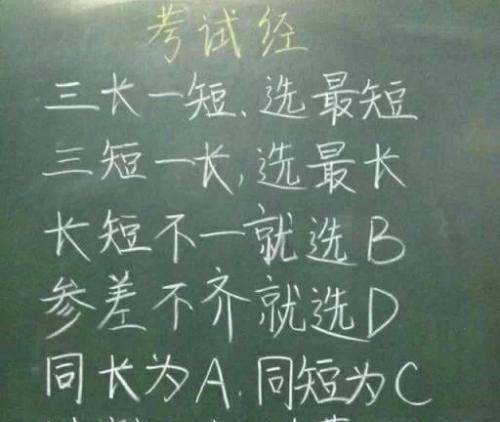 考试经
三长一短、选最短
三短一长,选最长
长短不一就选B
参差不齐就选D
同长为A.同短为C